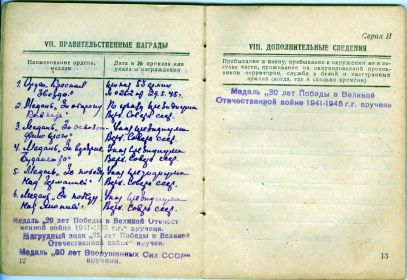 VII. ПРАВИТЕЛЬСТВЕННЫЕ НАГРАДЫ
Наименование ордена, медали
Дата и № приказа или указа о награждении
1. Орден Красная
Звезда"
2. Медаль „За оборону
Указу Президиума
Верх. Совета ссср.
3. Медаль „За
Указ Президиума
Верх. Совета ссср.
4. Медаль „За взятие
Будапешта"
Указ Президиума
Верх. Совета ссср.
5. Медаль „За победу
Над Германией"
Указ Президиума
Верх. Совета ссср.
6. Медаль „За победу
Над Японией"
Указ Президиума
Верх. Совета ссср.
Медаль „20 лет Победы в Великой Отечест-
венной войне 1941-1945 г.г." вручена.
Нагрудный знак „25 лет Победы в Великой
Отечественной войне" вручен.
Медаль „50 лет Вооруженных Сил СССР"
вручена.
12
Серия И
VIII. ДОПОЛНИТЕЛЬНЫЕ СВЕДЕНИЯ
Пребывание в плену, пребывание в окружении не в со-
ставе части, проживание на оккупированной против-
ником территории, служба в белой и иностранных
армиях (когда, где и сколько времени)
Медаль „30 лет Победы в Великой
Отечественной войне 1941-1945 г.г. вручена
13